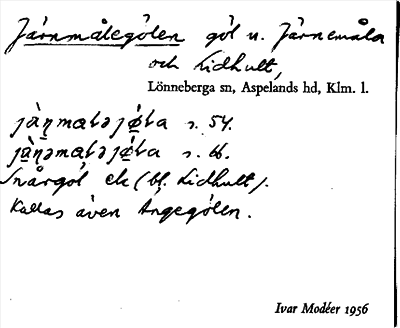 Järnmålegölen göl u. Järnemåla
och Lidhult,
Lönneberga sn, Aspelands hd, Klm. l.
s. 54.
s. 66.
Snårgöl ek (bl. Lidhult).
Kallas även Ängegölen.
Ivar Modéer 1956